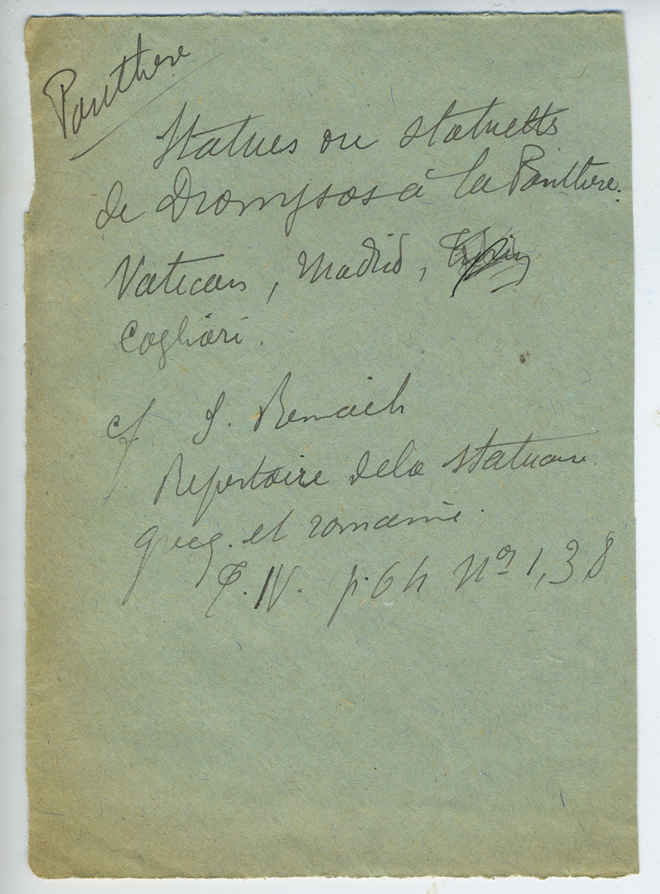 Panthere
Statues ou statuettes
de Dionysos à la Panthere.
Vatican, Madrid,
Cagliari.
cf S. Reinach
Repertoire de la statuaire
grecq. et romaine.
T. IV. p. 64 nos 1, 3, 8